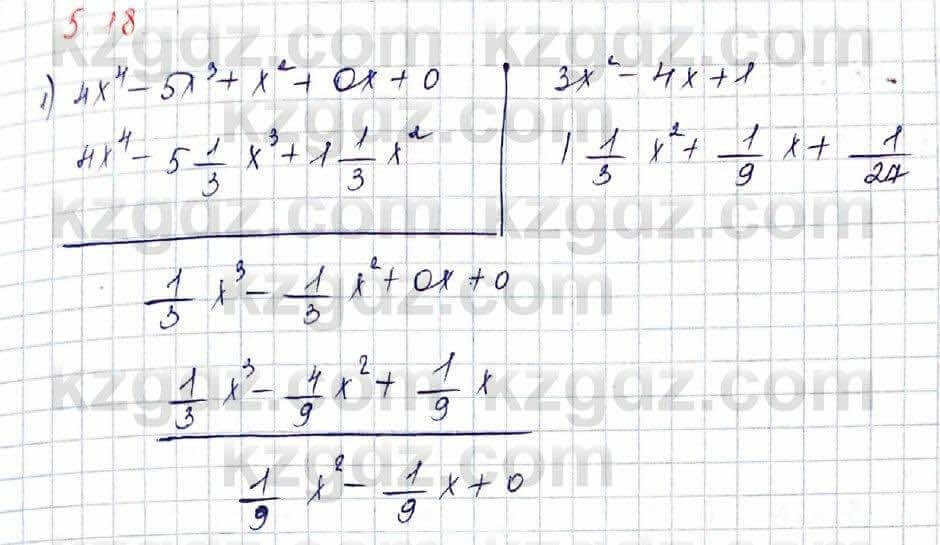 5 18
1) 4x⁴ - 5x³ + x² + 0x + 0 | 3x² - 4x + 1
4x⁴ - 5 1/3 x³ + 1 1/3 x² | 1 1/3 x² + 1/9 x + 1/27
1/3 x³ - 1/3 x² + 0x + 0
1/3 x³ - 4/9 x² + 1/9 x
1/9 x² - 1/9 x + 0
kzgdz.com kzgdz.com
kzgdz.com
kzgdz.com kzgdz.com
kzgdz.com
kzgdz.com kzgdz.com
kzgdz.com